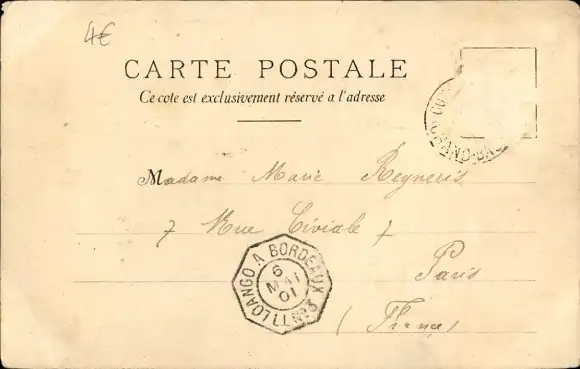 4€
CARTE POSTALE
Ce cote est exclusivement réservé a l'adresse
GRAND-BA
Madame Marie Reyneris
7 Rue Civiale 7
Paris
(France)
LOANGO A BORDEAUX
6
MAI
01
L.L Nº3